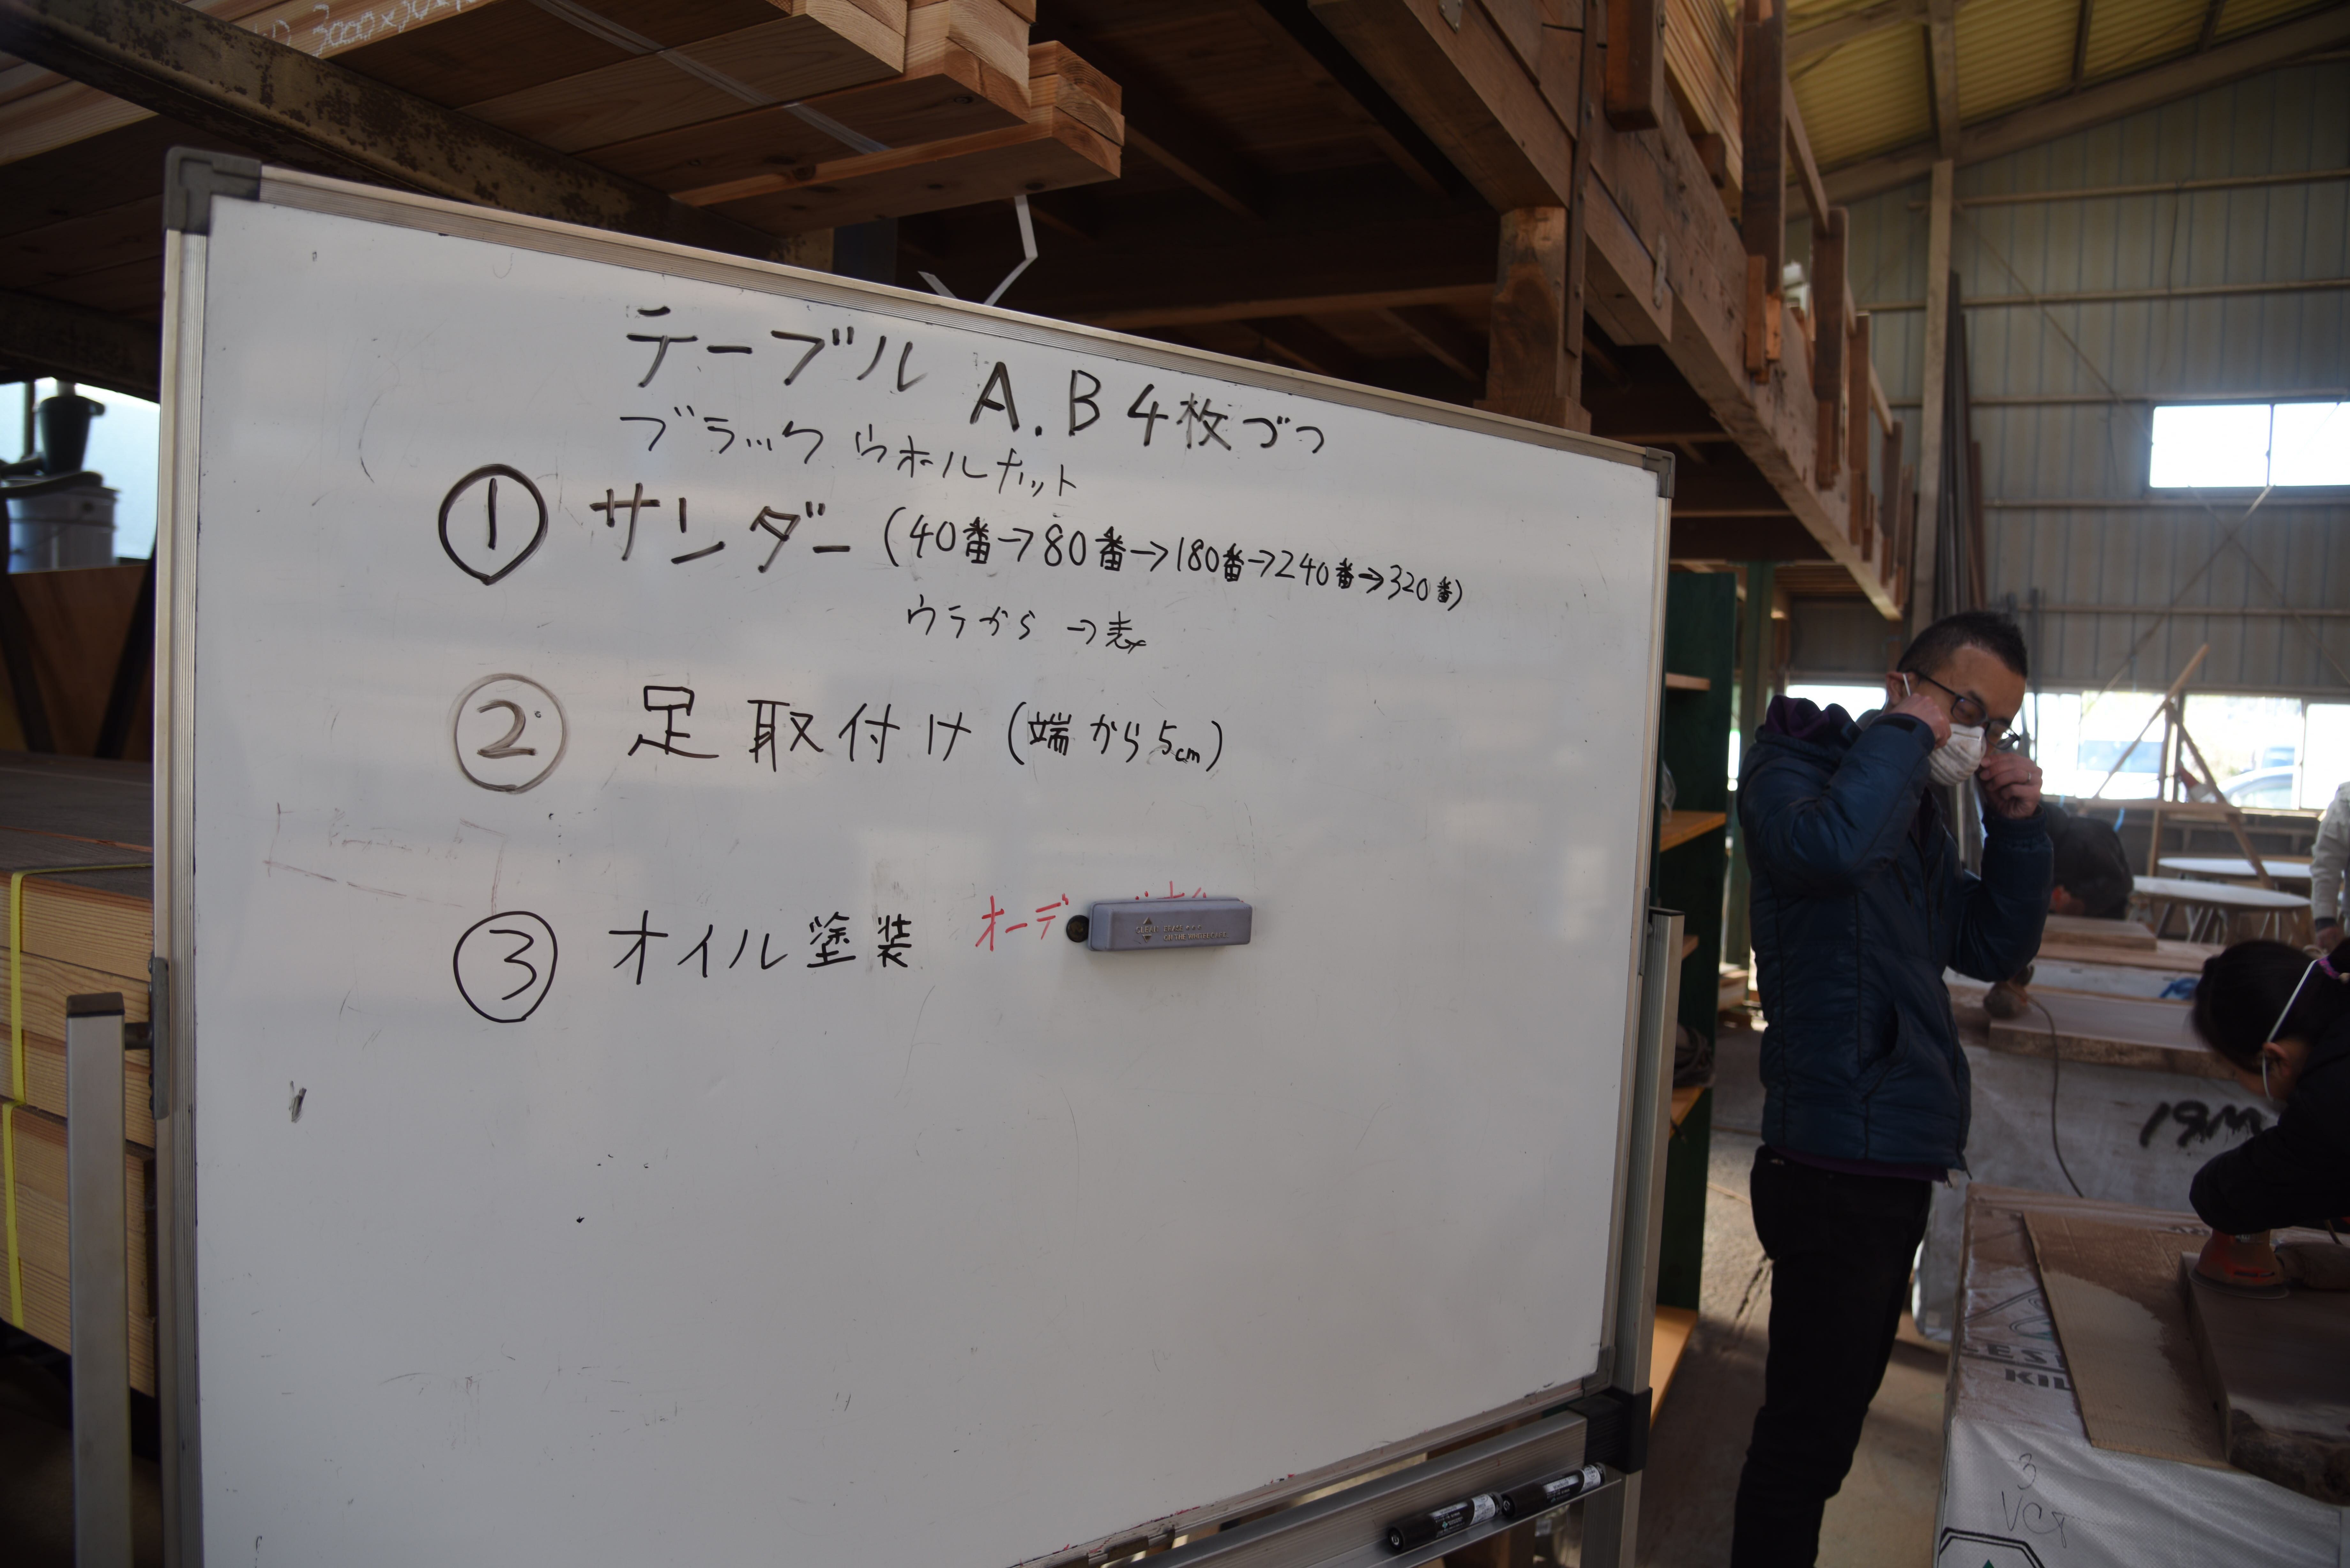 3000×30×
テーブル A.B 4枚づつ
ブラックウォルナット
① サンダー (40番→80番→180番→240番→320番)
ウラから→表
② 足取付け (端から5cm)
③ オイル塗装 オーデ
19M
KIL
3